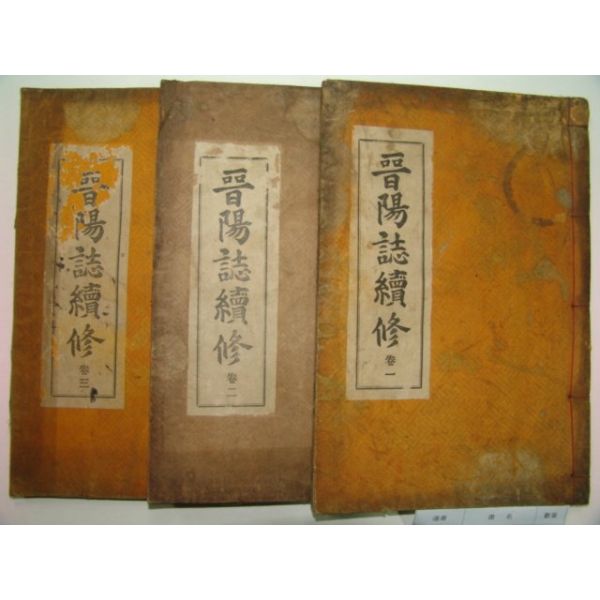 晉陽誌續修
卷一
晉陽誌續修
卷二
晉陽誌續修
卷三